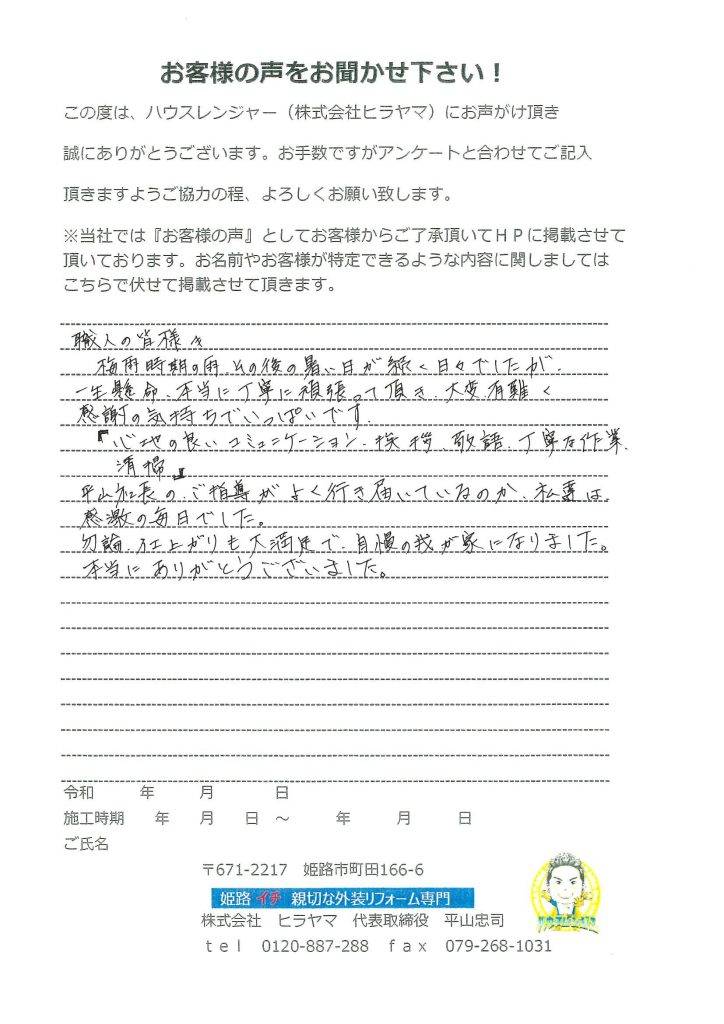 お客様の声をお聞かせ下さい！
この度は、ハウスレンジャー（株式会社ヒラヤマ）にお声がけ頂き
誠にありがとうございます。お手数ですがアンケートと合わせてご記入
頂きますようご協力の程、よろしくお願い致します。
※当社では『お客様の声』としてお客様からご了承頂いてＨＰに掲載させて
頂いております。お名前やお客様が特定できるような内容に関しましては
こちらで伏せて掲載させて頂きます。
職人の皆様へ
梅雨時期の雨、その後の暑い日が続く日々でしたが、
一生懸命、本当に丁寧に頑張って頂き、大変有難く
感謝の気持ちでいっぱいです。
『心地の良いコミュニケーション、挨拶、敬語、丁寧な作業、
清掃』
平山社長の、ご指導がよく行き届いているのか、私共は
感激の毎日でした。
勿論、仕上がりも大満足で、自慢の我が家になりました。
本当にありがとうございました。
令和　　年　　月　　日
施工時期　年　月　日　～　年　月　日
ご氏名
〒671-2217　姫路市町田166-6
姫路 イチ 親切な外装リフォーム専門
株式会社　ヒラヤマ　代表取締役　平山忠司
ｔｅｌ　0120-887-288　ｆａｘ　079-268-1031
ハウスレンジャー